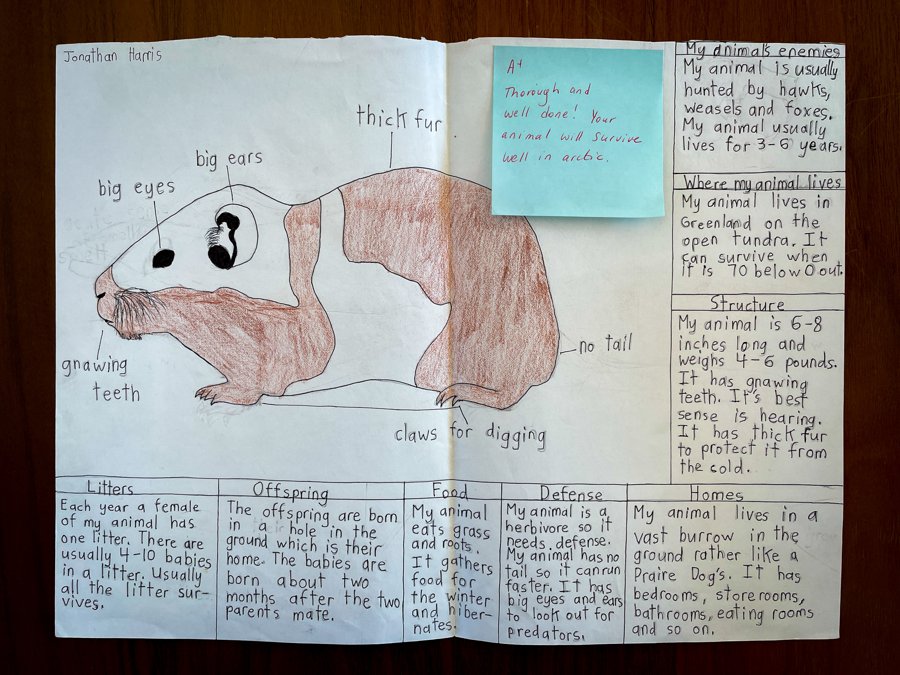 Jonathan Harris
A+
Thorough and
well done! Your
animal will survive
well in arctic.
thick fur
big ears
big eyes
gnawing
teeth
no tail
claws for digging
My animals enemies
My animal is usually
hunted by hawks,
weasels and foxes.
My animal usually
lives for 3-6 years.
Where my animal lives
My animal lives in
Greenland on the
open tundra. It
can survive when
it is 70 below 0 out.
Structure
My animal is 6-8
inches long and
weighs 4-6 pounds.
It has gnawing
teeth. It's best
sense is hearing.
It has thick fur
to protect it from
the cold.
Litters
Each year a female
of my animal has
one litter. There are
usually 4-10 babies
in a litter. Usually
all the litter sur-
vives.
Offspring
The offspring are born
in a hole in the
ground which is their
home. The babies are
born about two
months after the two
parents mate.
Food
My animal
eats grass
and roots.
It gathers
food for
the winter
and hiber-
nates.
Defense
My animal is a
herbivore so it
needs defense.
My animal has no
tail so it can run
faster. It has
big eyes and ears
to look out for
predators.
Homes
My animal lives in a
vast burrow in the
ground rather like a
Praire Dog's. It has
bedrooms, store rooms,
bathrooms, eating rooms
and so on.